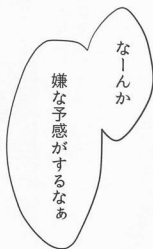 なーんか
嫌な予感がするなぁ